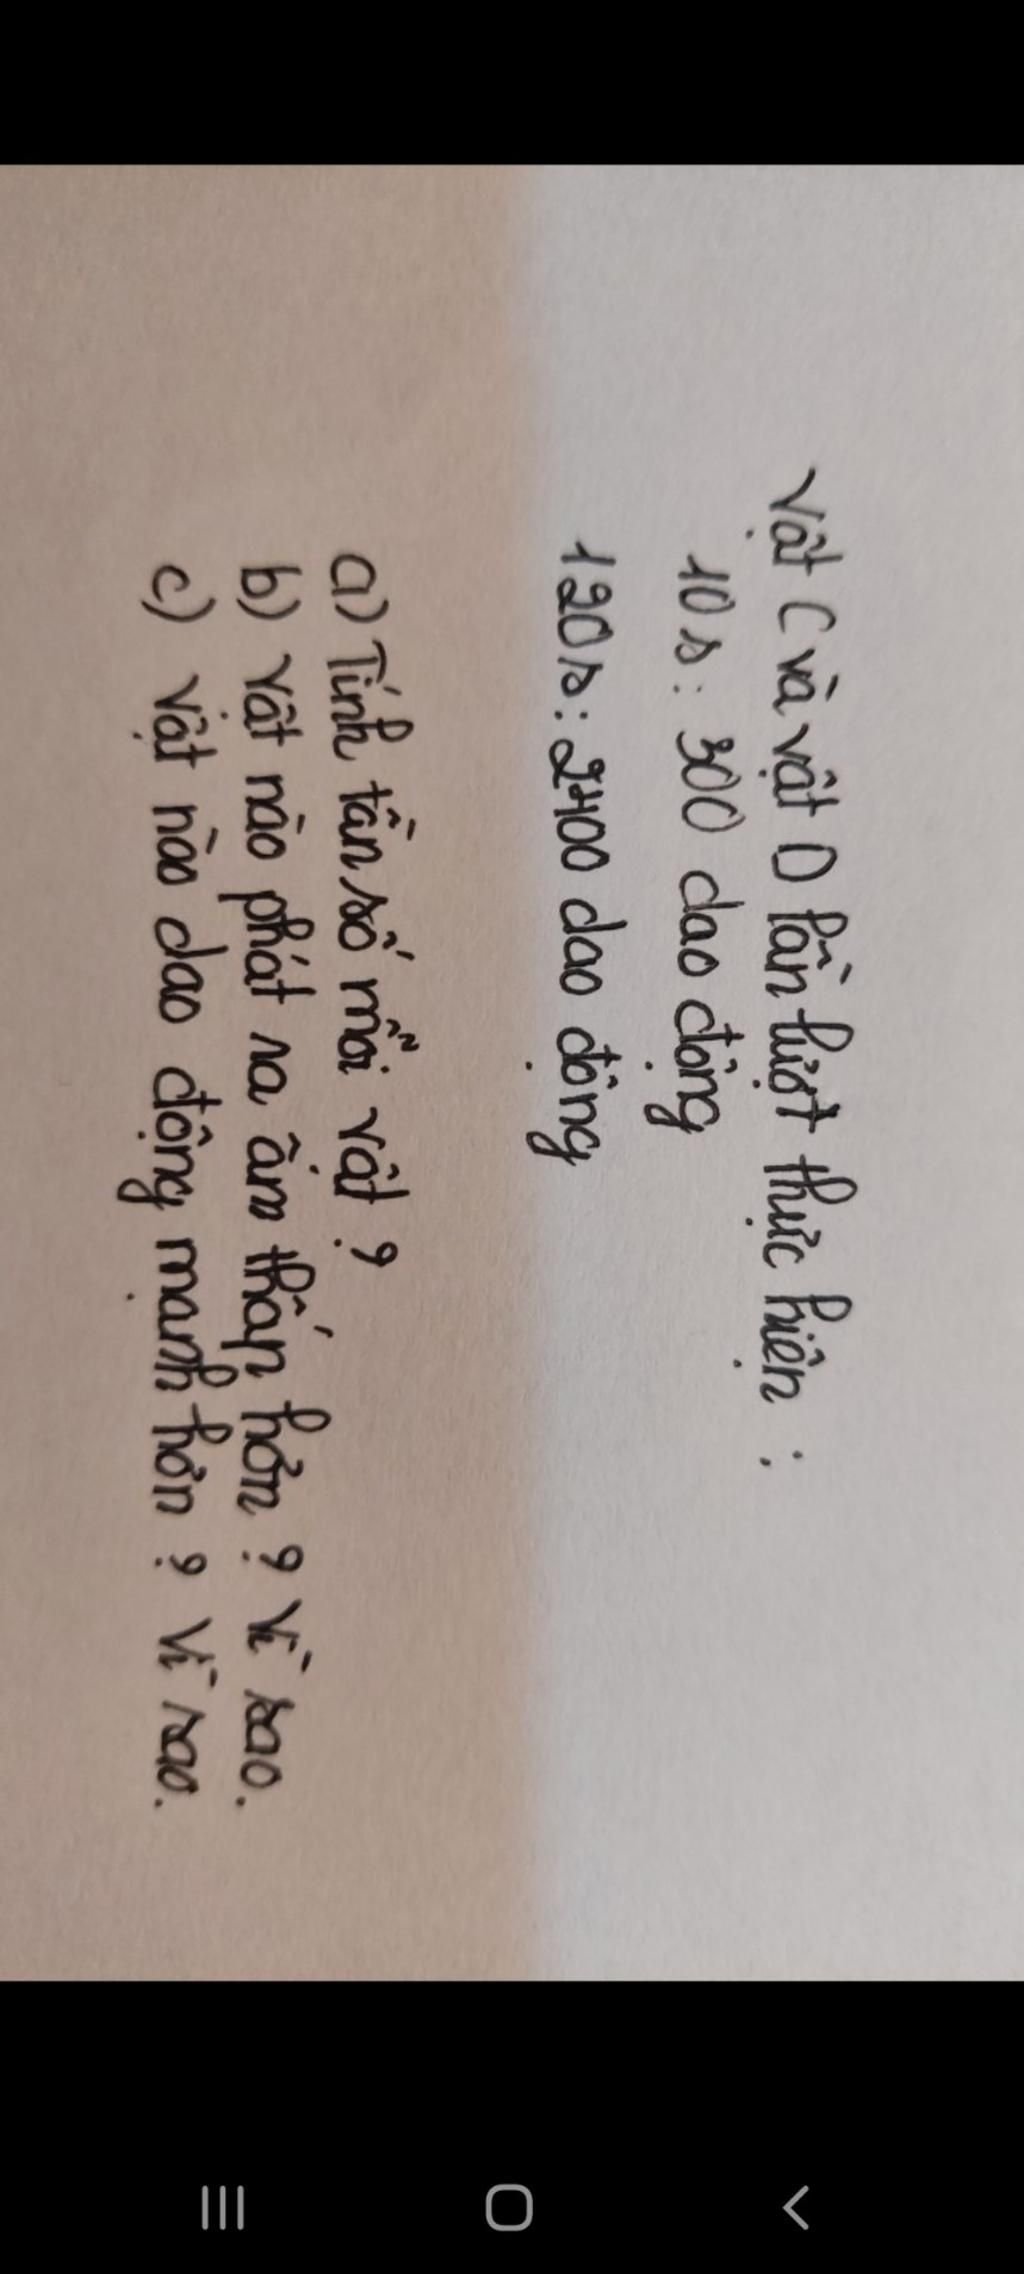 Vật C và vật D lần lượt thực hiện :
10s : 300 dao động
120s : 2400 dao động
a) Tính tần số mỗi vật ?
b) Vật nào phát ra âm thấp hơn ? Vì sao.
c) Vật nào dao động mạnh hơn ? Vì sao.